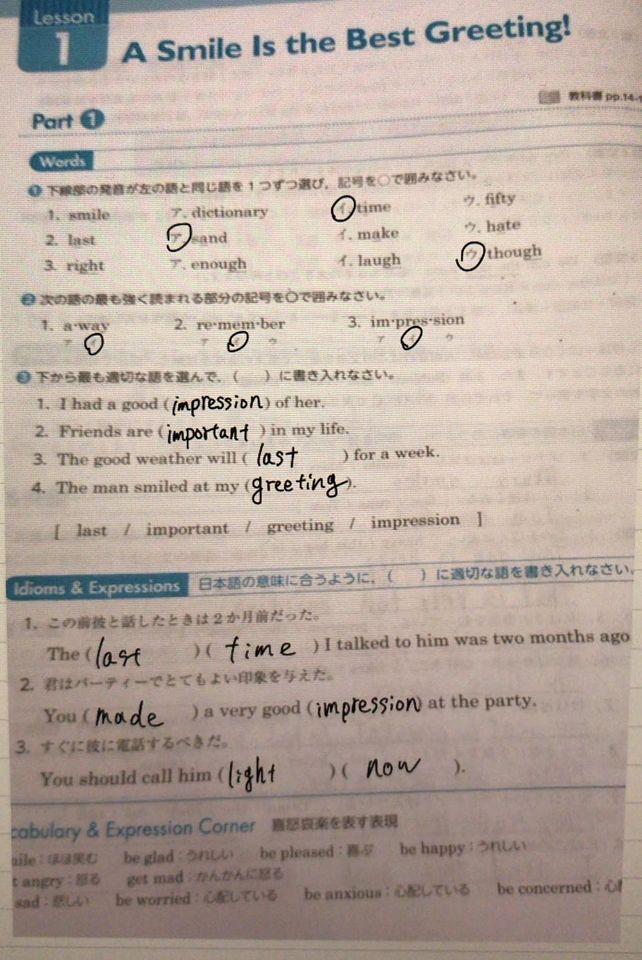 Lesson
1
A Smile Is the Best Greeting!
教科書 pp.14-
Part 1
Words
❶ 下線部の発音が左の語と同じ語を1つずつ選び，記号を○で囲みなさい。
1. smile ア. dictionary イ. time ウ. fifty
2. last ア. sand イ. make ウ. hate
3. right ア. enough イ. laugh ウ. though
❷ 次の語の最も強く読まれる部分の記号を○で囲みなさい。
1. a·way 2. re·mem·ber 3. im·pres·sion
ア イ ア イ ウ ア イ ウ
❸ 下から最も適切な語を選んで，( )に書き入れなさい。
1. I had a good (impression) of her.
2. Friends are (important) in my life.
3. The good weather will (last) for a week.
4. The man smiled at my (greeting).
[ last / important / greeting / impression ]
Idioms & Expressions 日本語の意味に合うように，( )に適切な語を書き入れなさい。
1. この前彼と話したときは2か月前だった。
The (last)(time) I talked to him was two months ago
2. 君はパーティーでとてもよい印象を与えた。
You (made) a very good (impression) at the party.
3. すぐに彼に電話するべきだ。
You should call him (light)(now).
cabulary & Expression Corner 喜怒哀楽を表す表現
mile：ほほ笑む be glad：うれしい be pleased：喜ぶ be happy：うれしい
t angry：怒る get mad：かんかんに怒る
sad：悲しい be worried：心配している be anxious：心配している be concerned：心